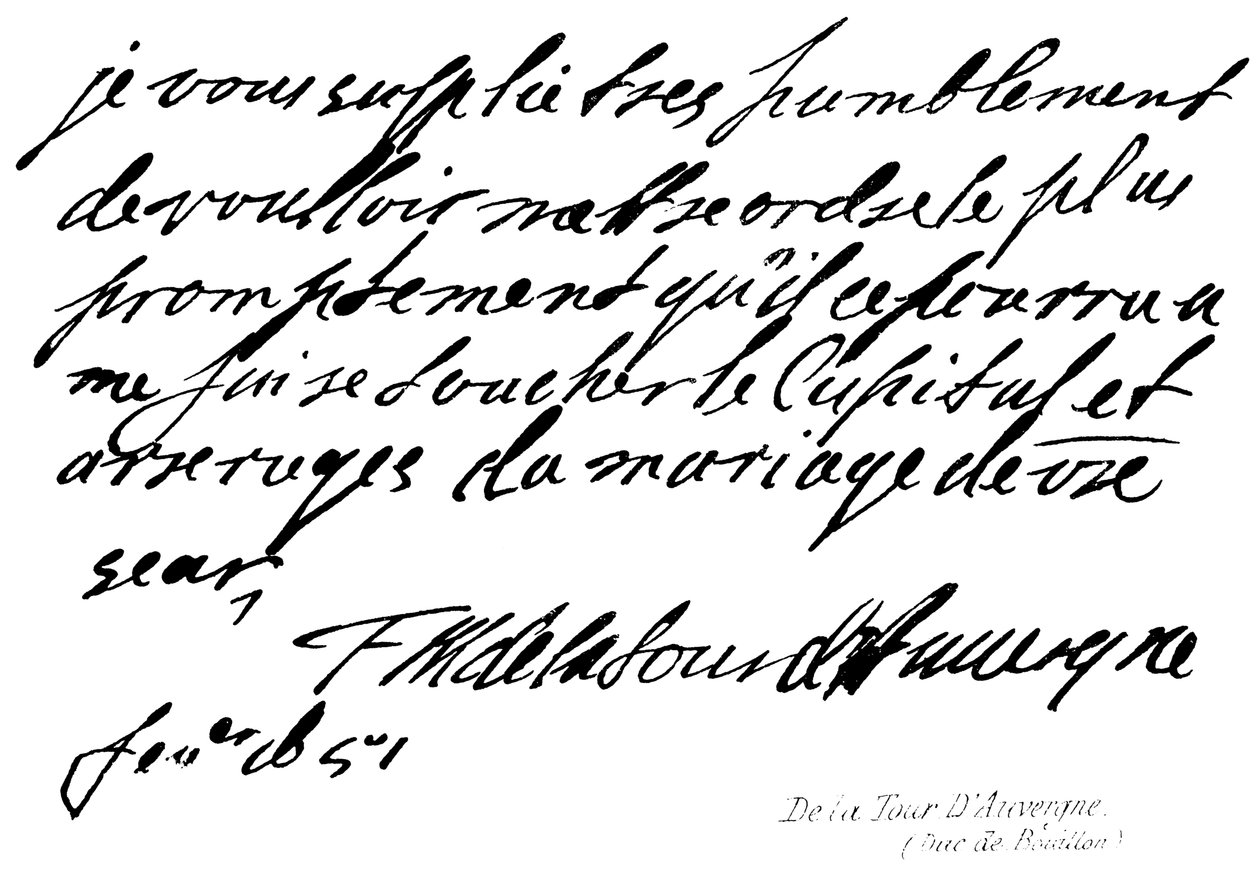 je vous supplie tres humblement
de voulloir mettre ordre le plus
promptement qu'il ce pourra a
me faire toucher le Capital et
arrerages du mariage de vre
sear
FM de la Tour d'Auvergne
fever 1651
De la Tour D'Auvergne.
(Duc de Bouillon)